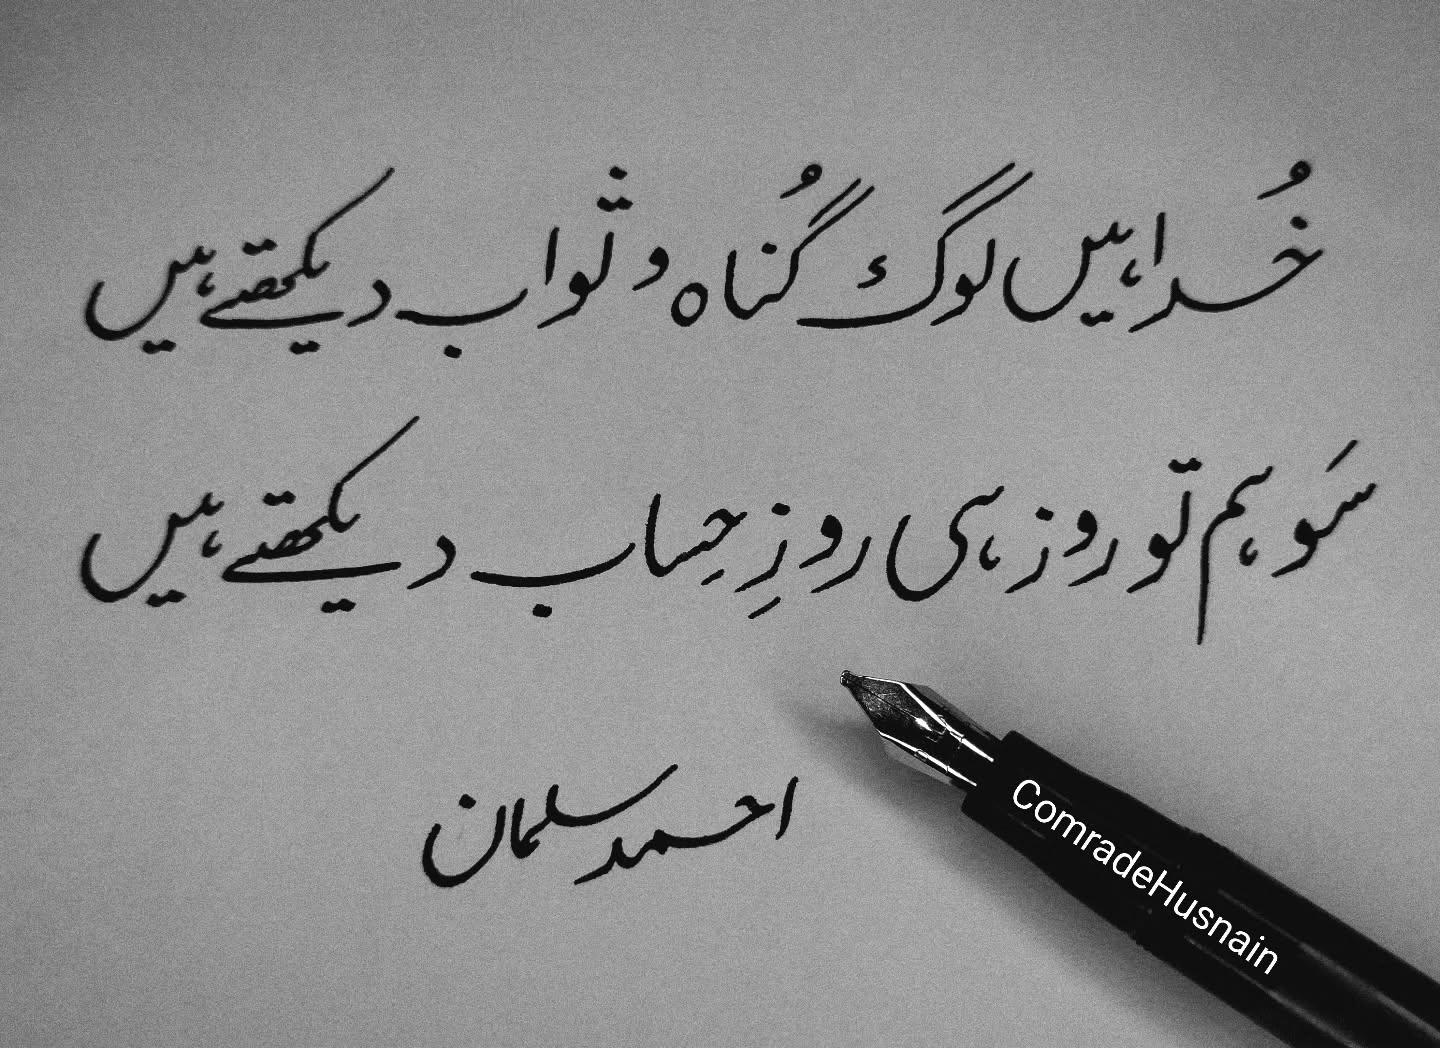 خُدا ہیں لوگ گُناہ و ثواب دیکھتے ہیں
سَو ہم تو روز ہی روزِ حِساب دیکھتے ہیں
احمد سلمان
ComradeHusnain